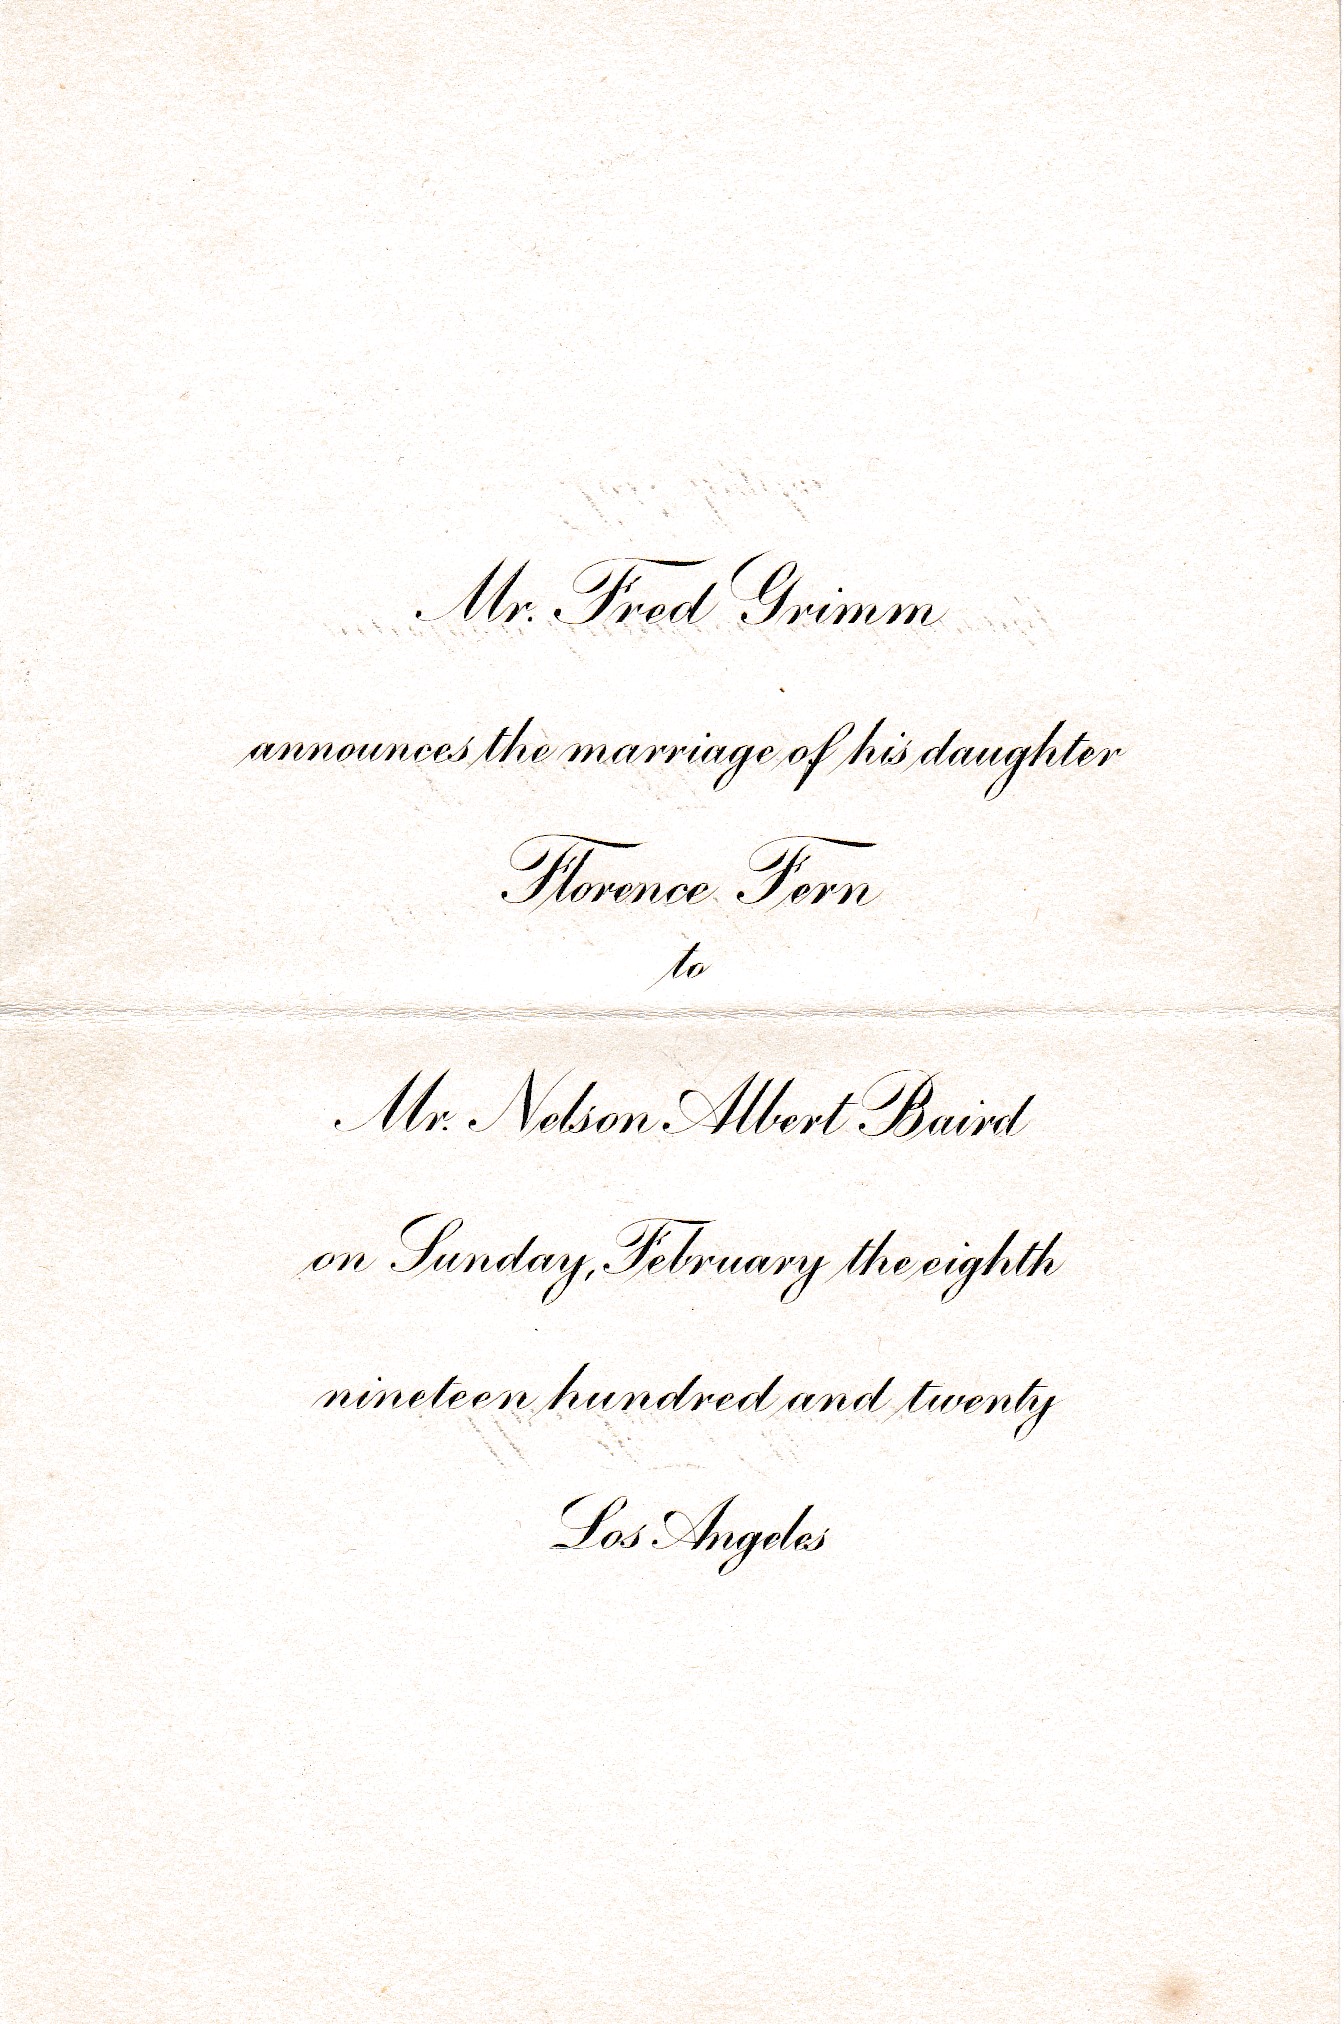 Mr. Fred Grimm
announces the marriage of his daughter
Florence Fern
to
Mr. Nelson Albert Baird
on Sunday, February the eighth
nineteen hundred and twenty
Los Angeles